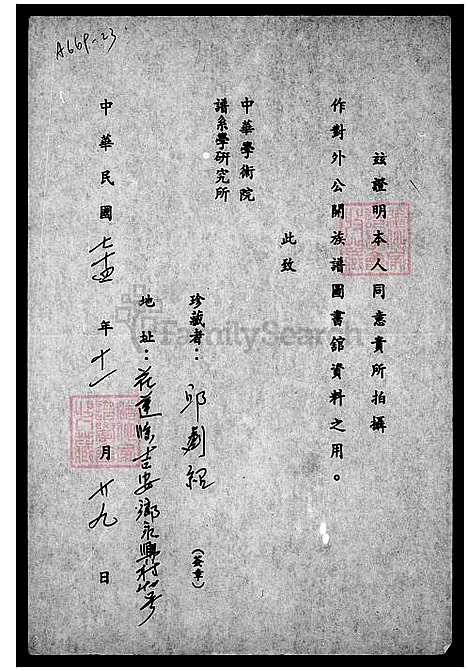 A669-23
茲證明本人同意貴所拍攝
作對外公開族譜圖書館資料之用。
此致
中華學術院
譜系學研究所
珍藏者：邱創經
(簽章)
地址：花蓮縣吉安鄉永興村
中華民國七十四年十一月廿九日
FamilySearch